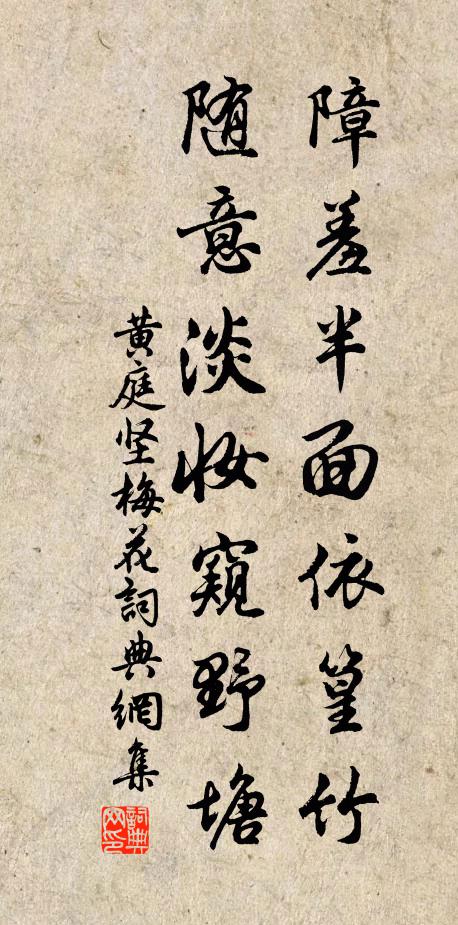 障羞半面依篁竹
随意淡妆窥野塘
黄庭坚梅花詞典網集
詞典网印